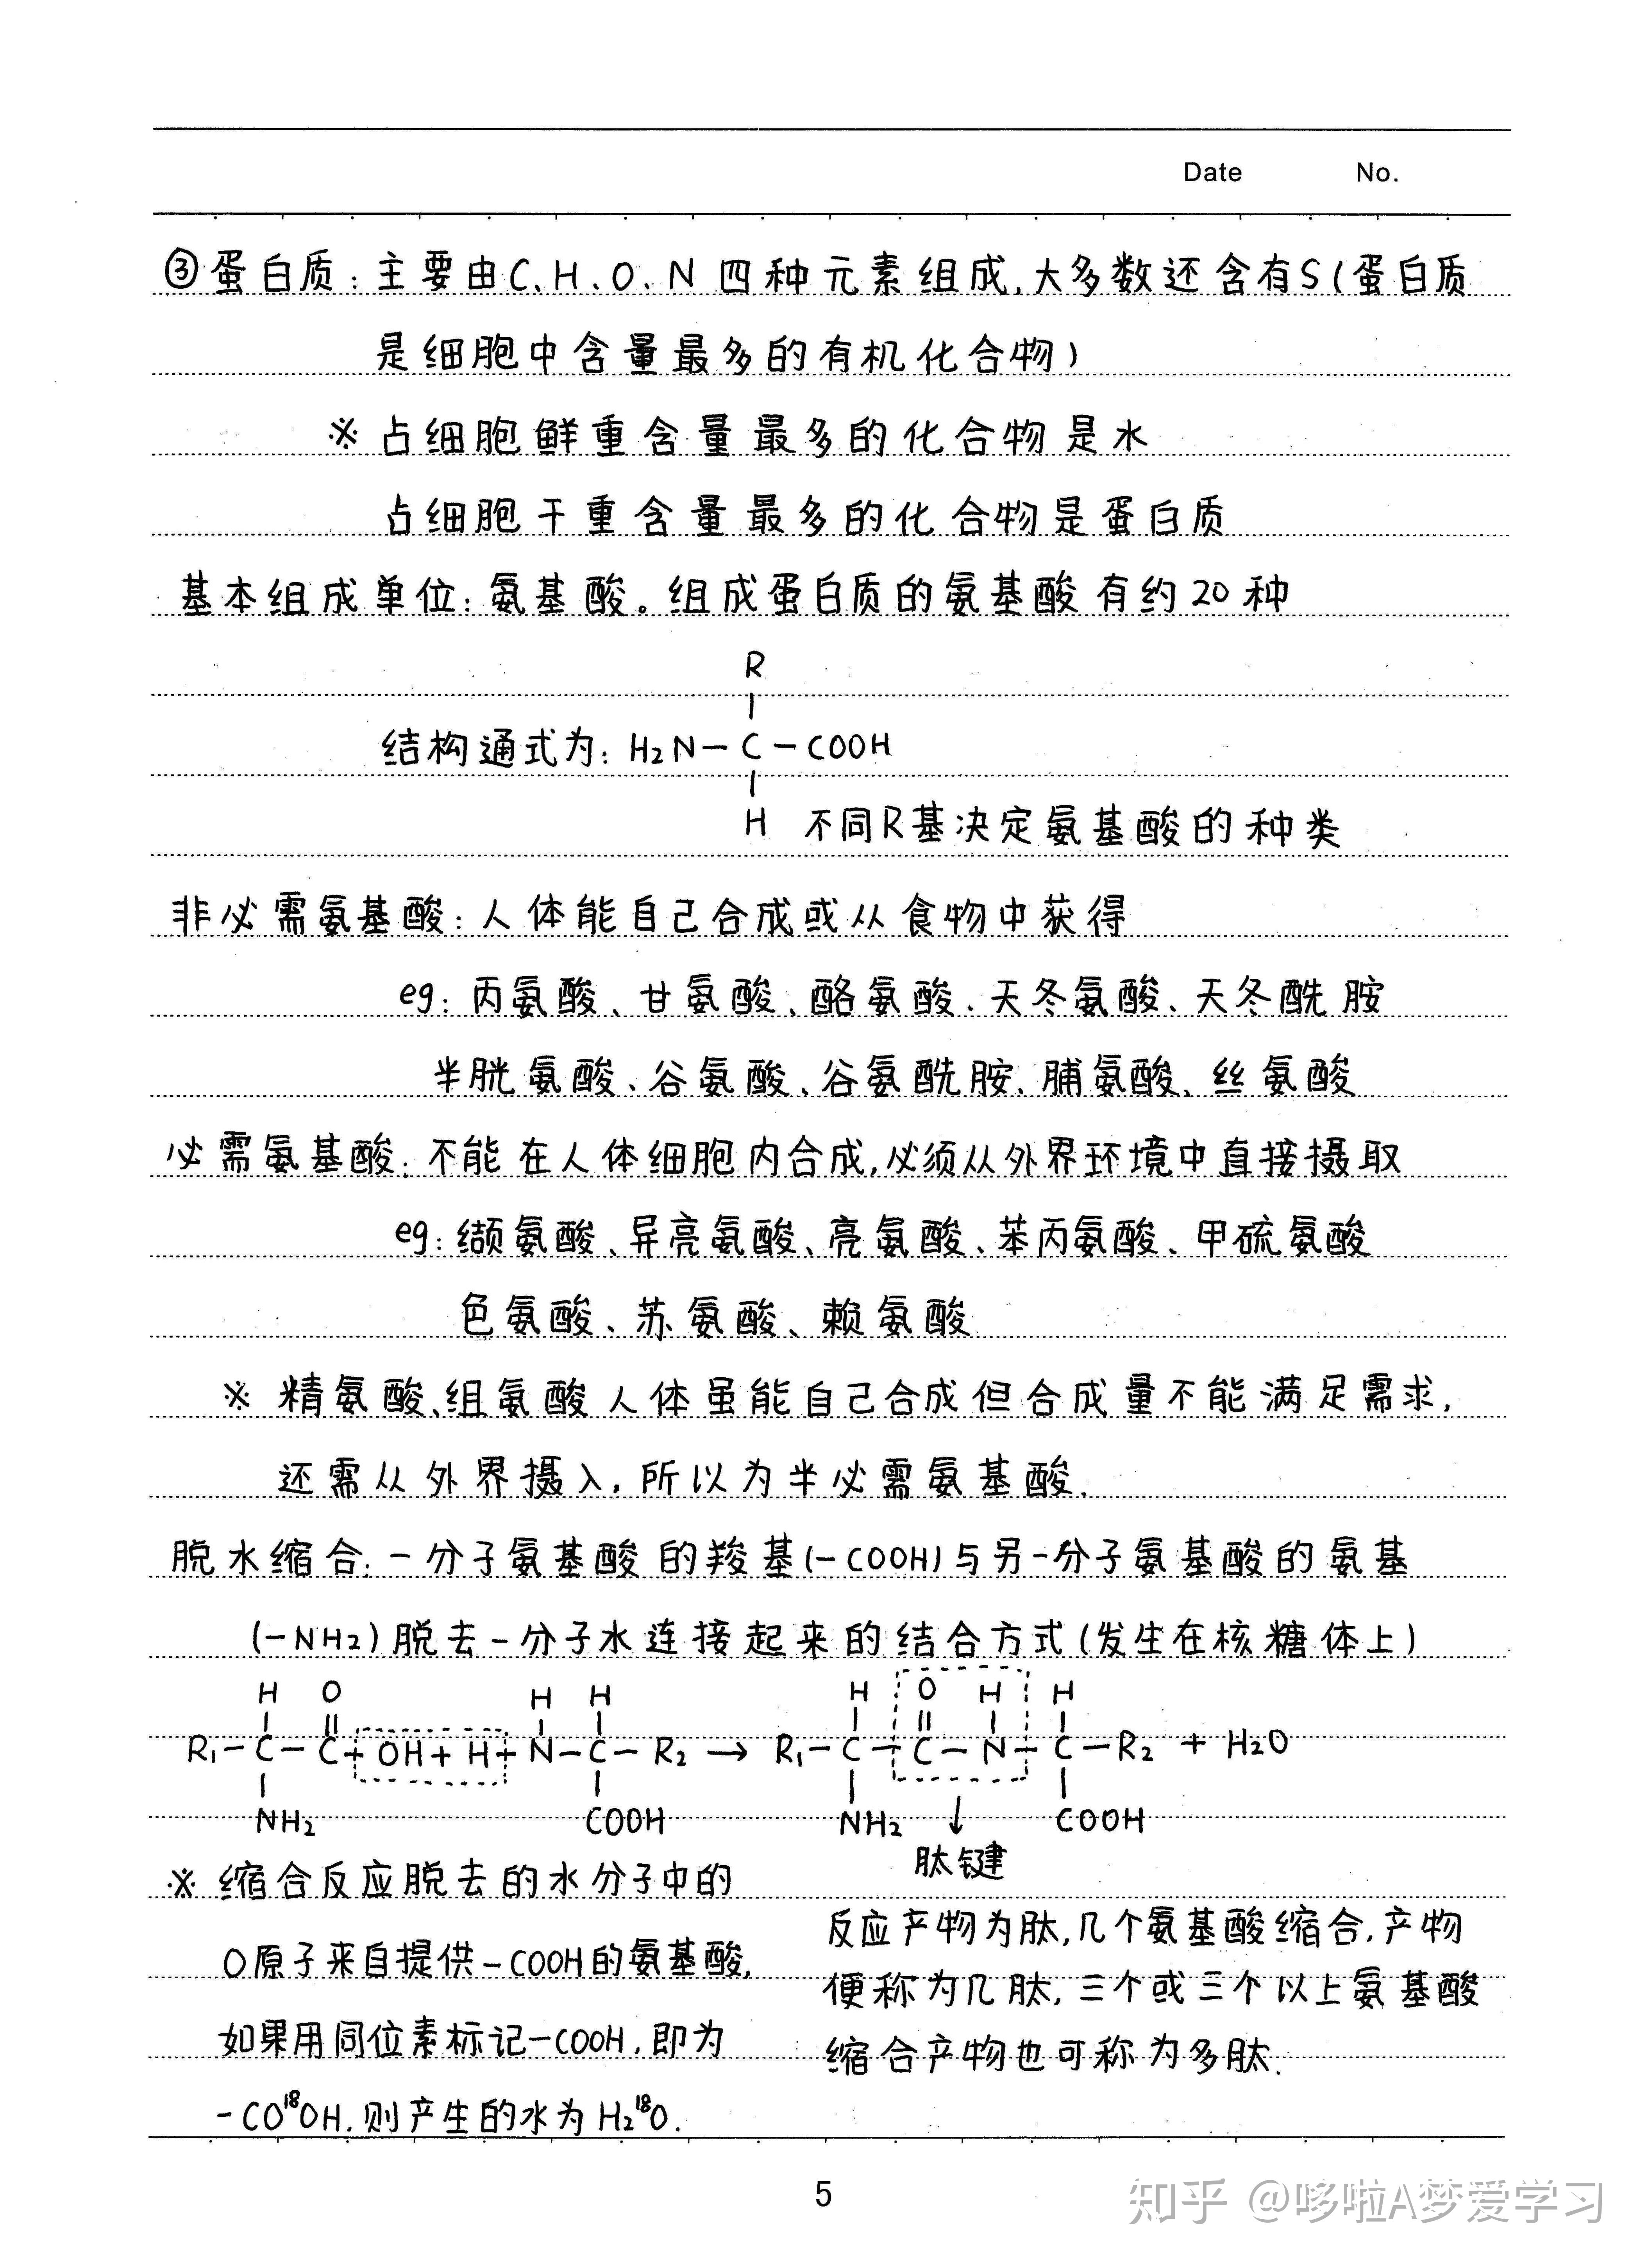 Date No.
③蛋白质:主要由C、H、O、N四种元素组成,大多数还含有S(蛋白质
是细胞中含量最多的有机化合物)
※占细胞鲜重含量最多的化合物是水
占细胞干重含量最多的化合物是蛋白质
基本组成单位:氨基酸。组成蛋白质的氨基酸有约20种
R
结构通式为: H₂N—C—COOH
H 不同R基决定氨基酸的种类
非必需氨基酸:人体能自己合成或从食物中获得
eg:丙氨酸、甘氨酸、酪氨酸、天冬氨酸、天冬酰胺
半胱氨酸、谷氨酸、谷氨酰胺、脯氨酸、丝氨酸
必需氨基酸:不能在人体细胞内合成,必须从外界环境中直接摄取
eg:缬氨酸、异亮氨酸、亮氨酸、苯丙氨酸、甲硫氨酸
色氨酸、苏氨酸、赖氨酸
※ 精氨酸、组氨酸人体虽能自己合成但合成量不能满足需求,
还需从外界摄入,所以为半必需氨基酸.
脱水缩合:一分子氨基酸的羧基(—COOH)与另一分子氨基酸的氨基
(—NH2)脱去一分子水连接起来的结合方式(发生在核糖体上)
H O H H H O H H
R₁—C—C—OH+H—N—C—R₂→R₁—C—C—N—C—R₂+H₂O
NH₂ COOH NH₂ ↓ COOH
肽键
※缩合反应脱去的水分子中的
O原子来自提供—COOH的氨基酸,
如果用同位素标记—COOH,即为
-CO¹⁸OH,则产生的水为H₂¹⁸O.
反应产物为肽,几个氨基酸缩合,产物
便称为几肽,三个或三个以上氨基酸
缩合产物也可称为多肽.
5
知乎 @哆啦A梦爱学习